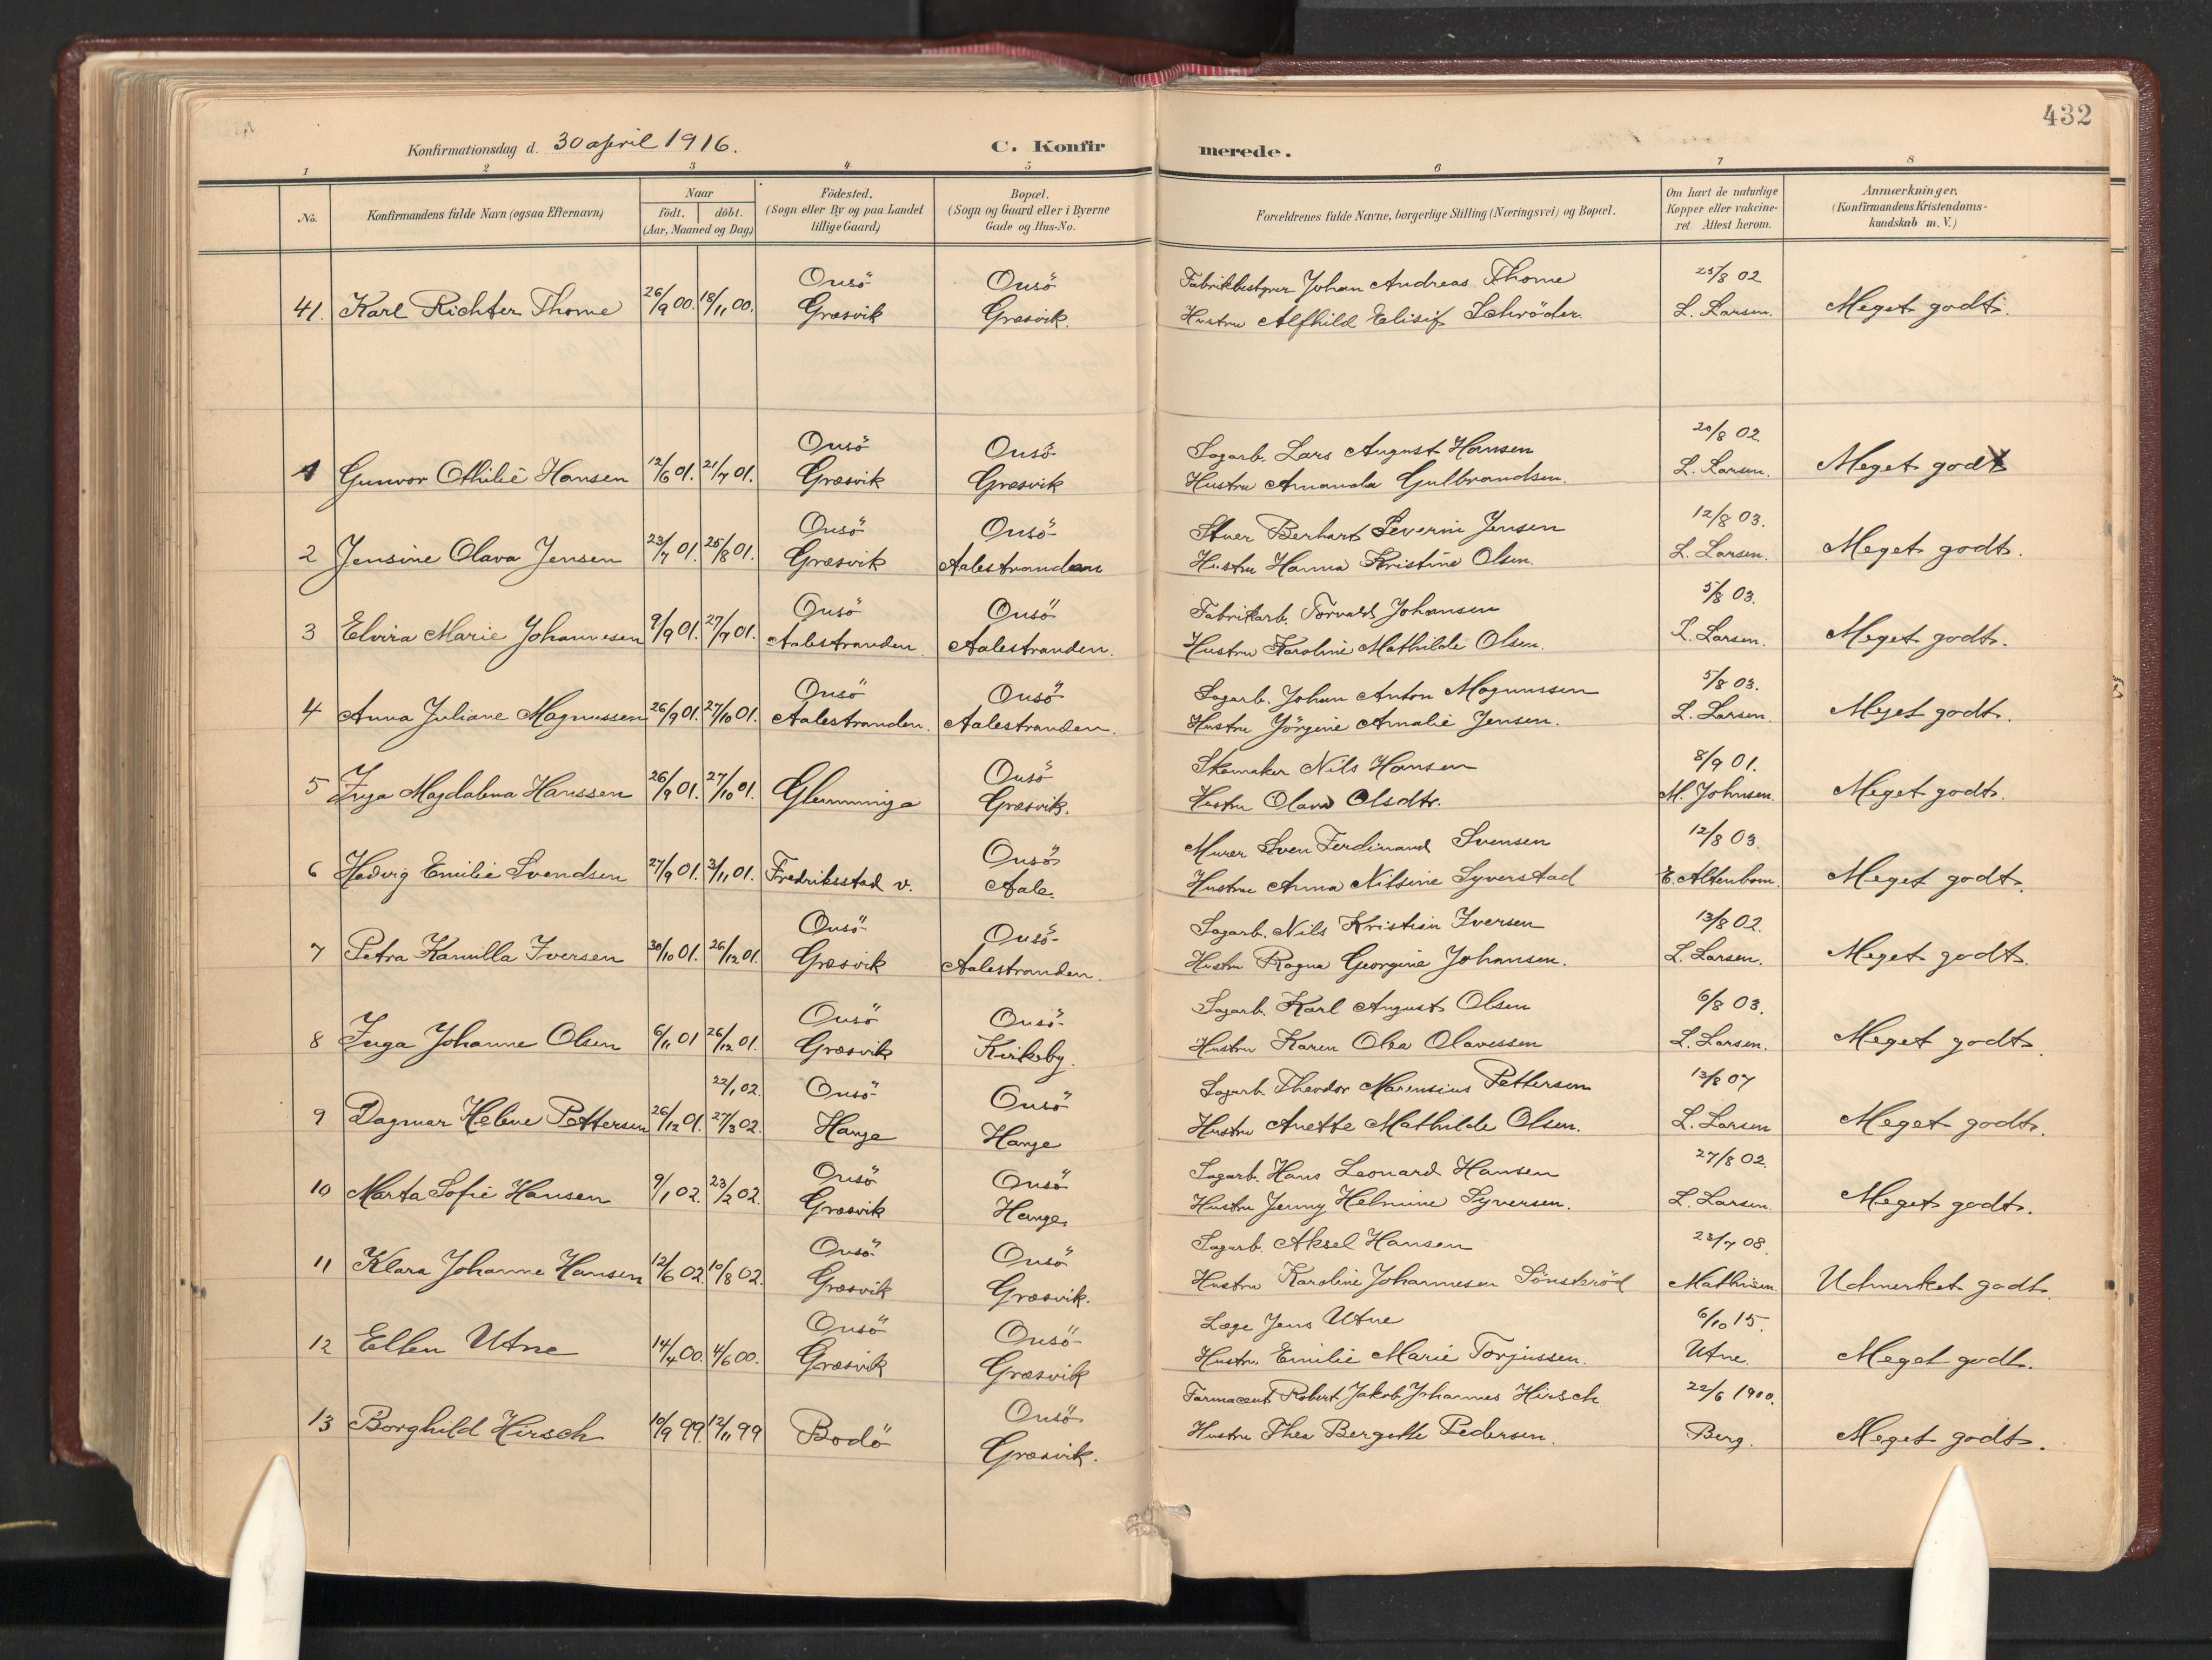 432
Konfirmationsdag d. 30 april 1916. C. Konfirmerede.
1 2 3 4 5 6 7 8
No. Konfirmandens fulde Navn (ogsaa Efternavn) Naar födt. döbt. (Aar, Maaned og Dag) Födested. (Sogn eller By og paa Landet tillige Gaard) Bopæl. (Sogn og Gaard eller i Byerne Gade og Hus-No. Forældrenes fulde Navne, borgerlige Stilling (Næringsvei) og Bopæl. Om havt de naturlige Kopper eller vakcineret. Attest herom. Anmærkninger. (Konfirmandens Kristendomskundskab m. V.)
Onsö Onsö Fabrikbestyrer Johan Andreas Thome 25/8 02
41. Karl Richter Thome 26/9 00. 18/11 00. Græsvik Græsvik. Hustru Alfhild Elisif Schröder. L. Larsen. Meget godt.
Onsö Onsö Sagarb. Lars August Hansen 20/8 02
1 Gunvor Othilie Hansen 12/6 01. 21/7 01. Græsvik Græsvik Hustru Amanda Gulbrandsen. L. Larsen. Meget godt
Onsö Onsö Stuer Berhart Severin Jensen 12/8 03.
2 Jensine Olava Jensen 23/7 01. 25/8 01. Græsvik Aalestranden Hustru Hanna Kristine Olsen. L. Larsen. Meget godt.
Onsö Onsö Fabrikarb. Torvald Johansen 5/8 03.
3 Elvira Marie Johannesen 9/9 01. 27/7 01. Aalestranden. Aalestranden. Hustru Karoline Mathilde Olsen. L. Larsen. Meget godt.
Onsö Onsö Sagarb. Johan Anton Magnussen 5/8 03.
4 Anna Juliane Magnussen 26/9 01. 27/10 01. Aalestranden. Aalestranden. Hustru Jörgine Amalie Jensen. L. Larsen. Meget godt.
Onsö Skomaker Nils Hansen 8/9 01.
5 Inga Magdalena Hanssen 26/9 01. 27/10 01. Glemminge Græsvik. Hustru Olava Olsdtr. M. Johnsen. Meget godt.
Onsö Murer Sven Ferdinand Svensen 12/8 03.
6 Hedvig Emilie Svendsen 27/9 01. 3/11 01. Fredriksstad v. Aale. Hustru Anna Nilsine Syverstad E. Altenborn. Meget godt.
Onsö Onsö Sagarb. Nils Kristian Iversen 13/8 02.
7 Petra Kamilla Iversen 30/10 01. 26/12 01. Græsvik Aalestranden. Hustru Ragna Georgine Johansen. L. Larsen. Meget godt.
Onsö Onsö Sagarb. Karl August Olsen 6/8 03.
8 Inga Johanne Olsen 6/11 01 26/12 01. Græsvik Kirkeby. Hustru Karen Olea Olavessen L. Larsen. Meget godt.
22/1 02. Onsö Onsö Sagarb. Theodor Marensius Pettersen 13/8 07
9 Dagmar Helene Pettersen 26/12 01. 27/3 02. Hauge Hauge Hustru Anette Mathilde Olsen. L. Larsen Meget godt.
Onsö Onsö Sagarb. Hans Leonard Hansen 27/8 02.
10 Marta Sofie Hansen 9/1 02. 23/2 02. Græsvik Hauge Hustru Jenny Helmine Syversen. L. Larsen. Meget godt.
Onsö Onsö Sagarb. Aksel Hansen 23/7 08.
11 Klara Johanne Hansen 12/6 02. 10/8 02. Græsvik Græsvik. Hustru Karoline Johannesen Sönsteröd Mathisen. Udmerket godt.
Onsö Onsö Læge Jens Utne 6/10 15.
12 Ellen Utne 14/4 00. 4/6 00. Græsvik Græsvik Hustru Emilie Marie Torjussen. Utne. Meget godt.
Onsö Farmaceut Robert Jakob Johannes Hirsch 22/6 1900.
13 Borghild Hirsch 10/9 99. 12/11 99 Bodö Græsvik. Hustru Thea Bergitte Pedersen. Berg. Meget godt.